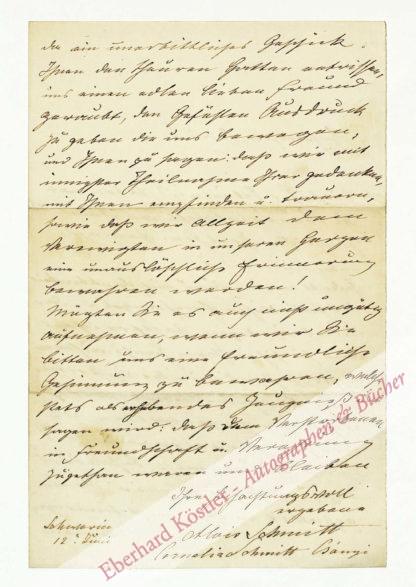 da ein unerbittliches Geschick
Ihnen den theuren Gatten entrissen,
uns einen edlen lieben Freund
geraubt, den Gefühlen Ausdruck
zu geben die uns bewegen,
und Ihnen zu sagen: daß wir mit
innigster Theilnahme Ihrer gedenken,
mit Ihnen empfinden u. trauern,
sowie daß wir allzeit dem
Verewigten in unseren Herzen
eine unauslöschliche Erinnerung
bewahren werden!
Mögten Sie es auch nicht ungütig
aufnehmen, wenn wir Sie
bitten uns eine freundliche
Gesinnung zu bewahren, welche
stets als erhebendes Zeugniß
sagen wird: daß dem Verstorbenen
in Freundschaft u. Verehrung
zugethan waren und bleiben
Ihre hochachtungsvoll
ergebene
Alois Schmitt
Cornelia Schmitt Csányi
Schwerin
12ten Juni
Eberhard Köstler - Autographen & Bücher